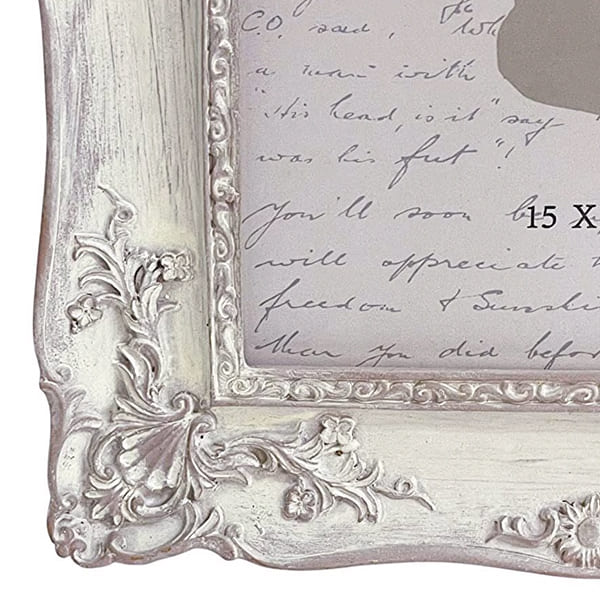 C.O. said, "Wh
a man with
"His head, is it" say
was his feet"!
You'll soon be
15 X
will appreciate
freedom & Sunshi
than you did befor